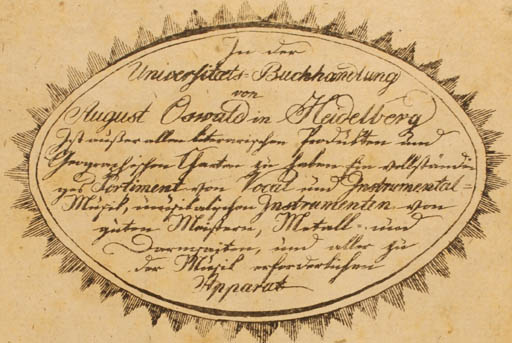 In der
Universitäts-Buchhandlung
von
August Oswald in Heidelberg
Ist außer allen literarischen Produkten und
Geographischen Charten zu haben Ein vollständi=
ges Sortiment von Vocal und Instrumental=
Musik, musikalischen Instrumenten von
guten Meistern, Metall= und
Darmsaiten, und aller zu
der Musik erforderlichen
Apparat